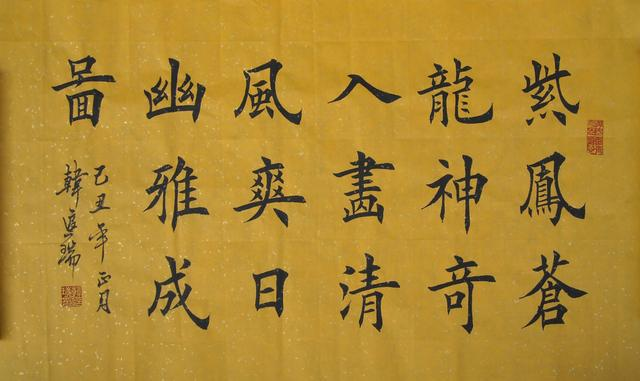 紫鳳蒼
龍神奇
入畫清
風爽日
幽雅成
啚
己丑年正月
韓 瑞